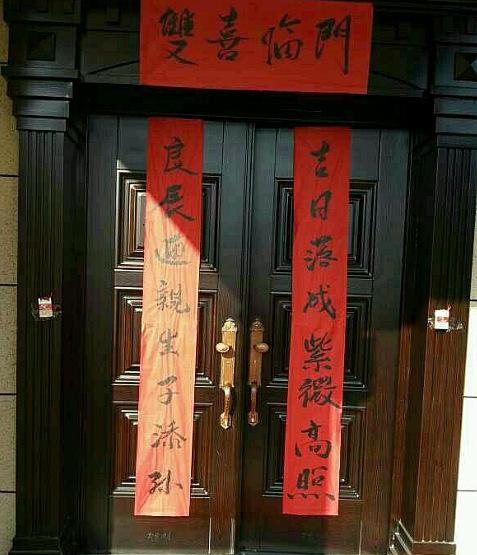 雙喜臨門
吉日落成紫微高照
良辰迎親生子添孫